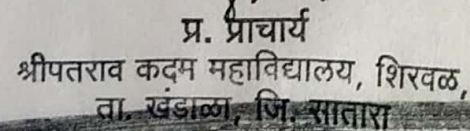 प्र. प्राचार्य
श्रीपतराव कदम महाविद्यालय, शिरवळ,
ता. खंडाळा, जि. सातारा